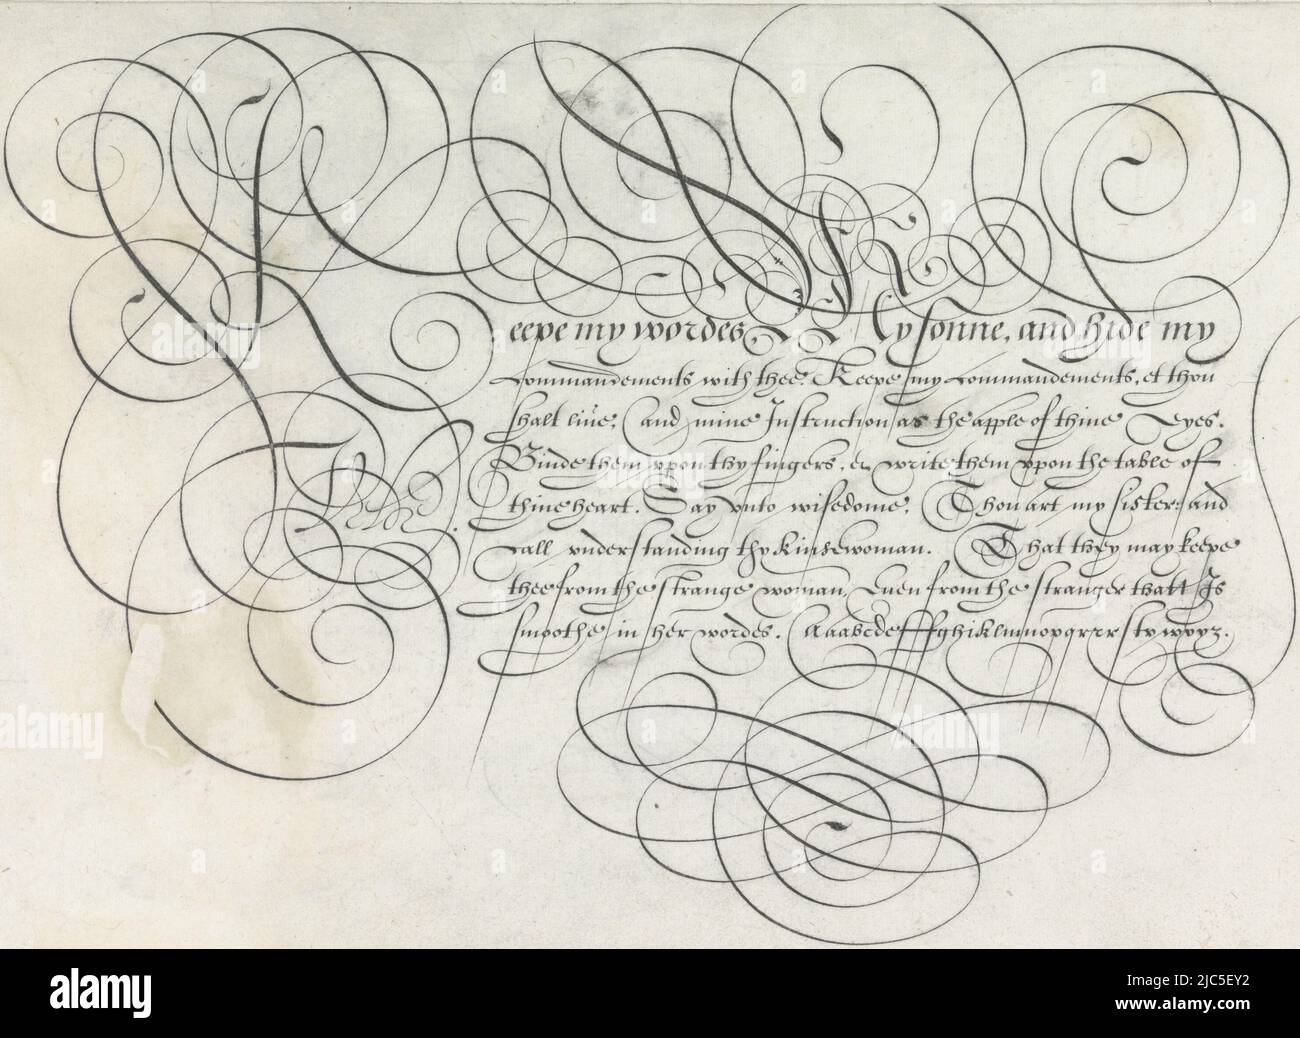 Keepe my wordes My sonne, and hide my
Commandements with thee. Keepe my Commandements, et thou
shalt liue, and mine Instruction as the apple of thine Eyes.
Binde them vpon thy fingers, & write them vpon the table of
thine heart. Say vnto wisedome, Thou art my sister: and
Call vnderstanding thy Kinsewoman. That they may keepe
thee from the strange woman, Euen from the stranger thatt Is
smoothe in her wordes.
alamy
alamy
www.alamy.com
Image ID: 2JC5EY2